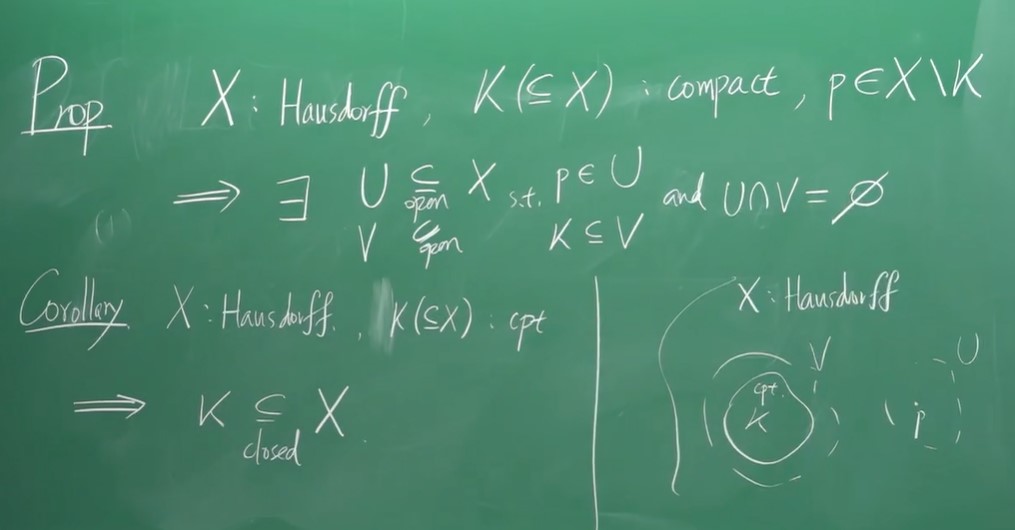 Prop X : Hausdorff, K (⊆ X) : compact, p ∈ X \ K
⟹ ∃ U ⊆ X s.t. p ∈ U and U ∩ V = ∅
open
V ⊆ K ⊆ V
open
(1)
Corollary X : Hausdorff, K (⊆ X) : cpt
⟹ K ⊆ X
closed
X : Hausdorff
V U
cpt.
K p